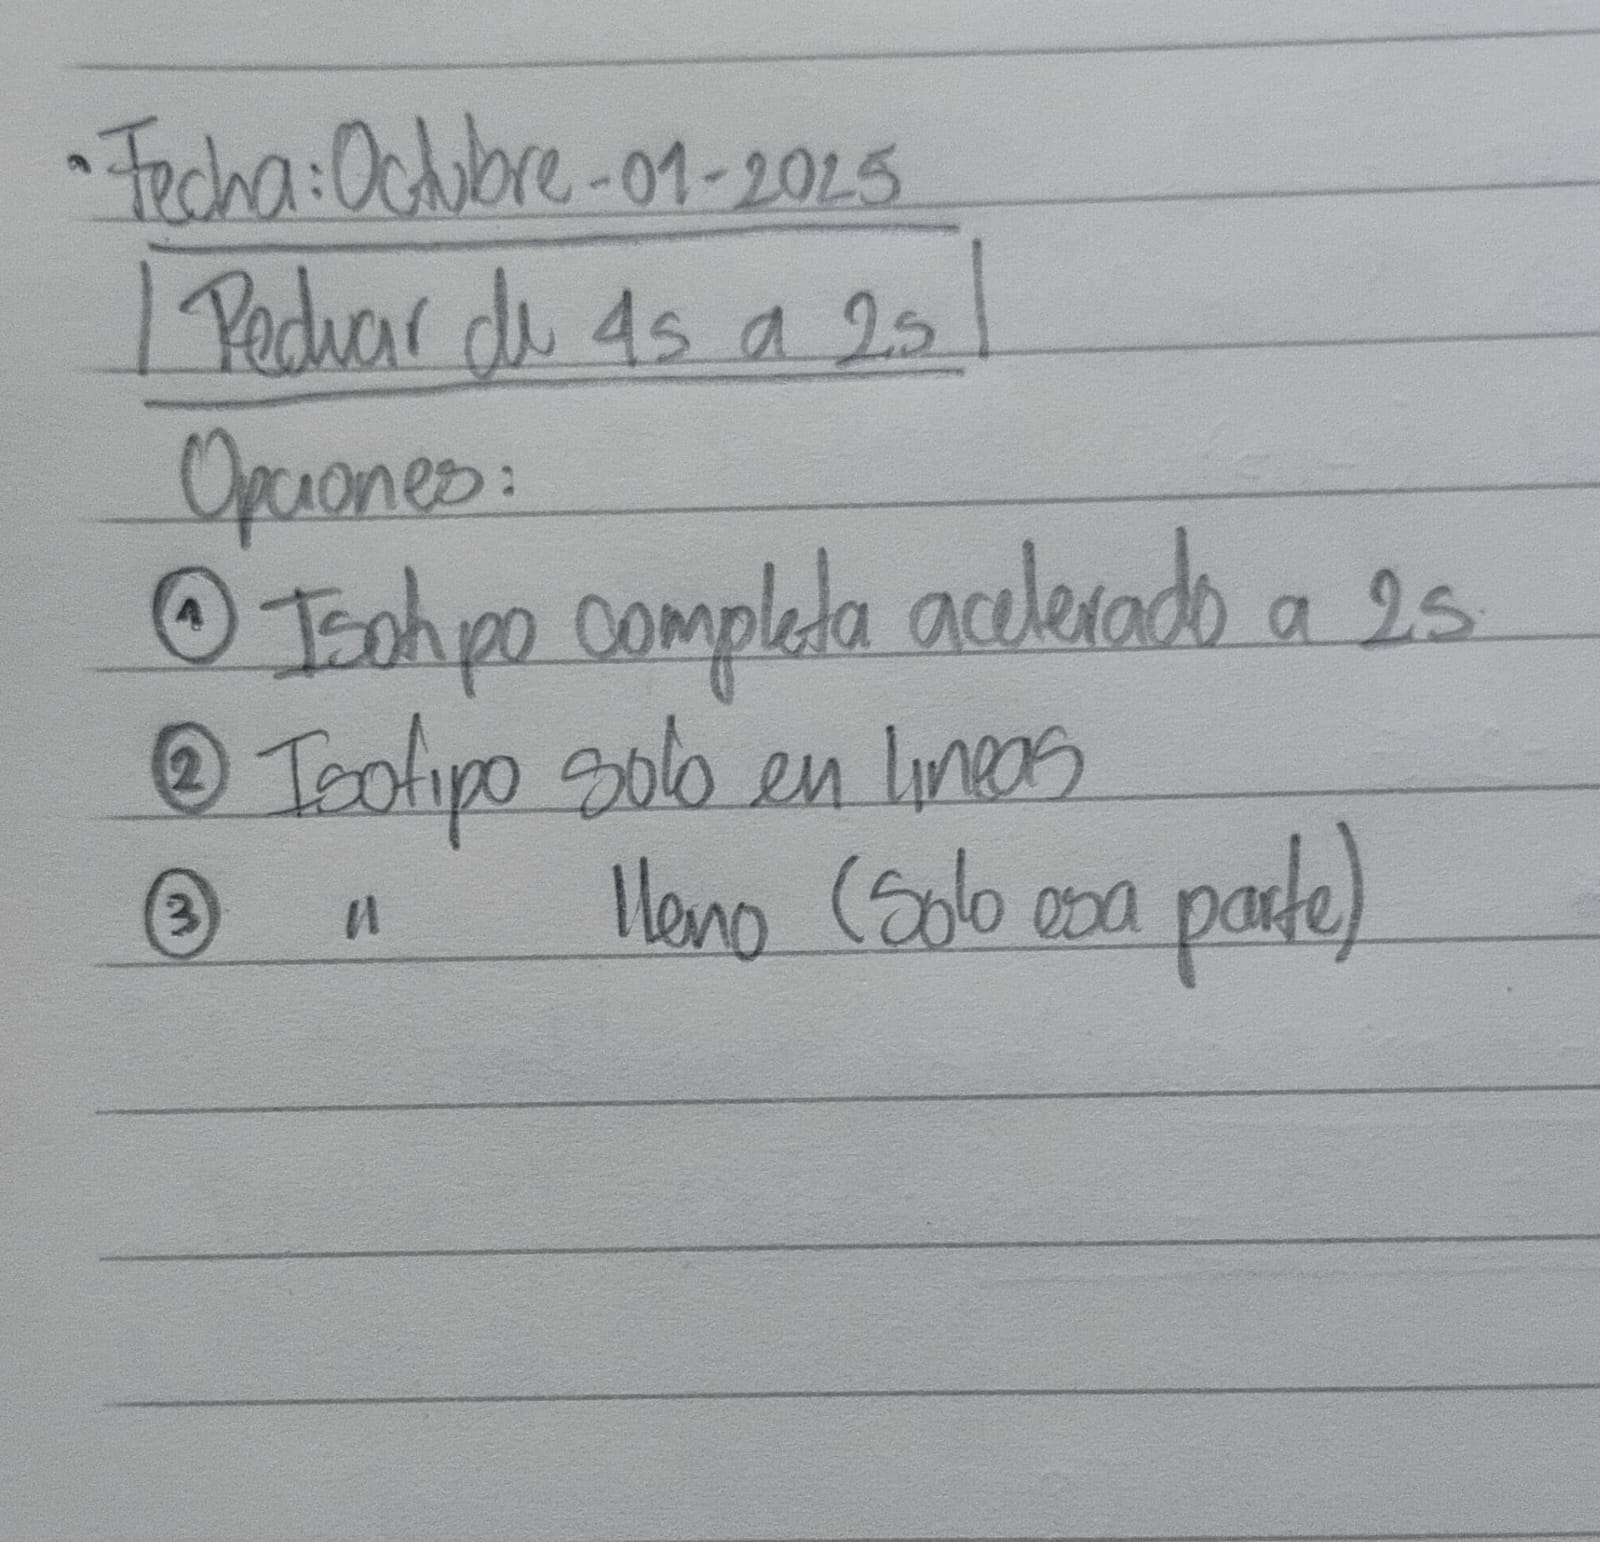 • Fecha: Octubre-01-2025
Reducir de 4s a 2s
Opciones:
① Isotipo completa acelerado a 2s.
② Isotipo solo en lineas
③ " lleno (Solo esa parte)